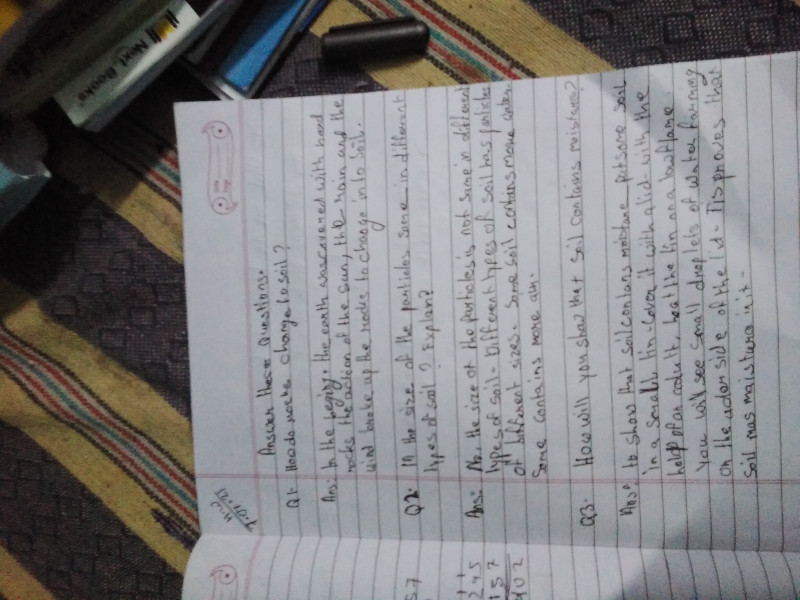 Next Books
H.W
Answer these Questions.
Q1. How do rocks change to soil?
Ans: In the , the earth was covered with hard
rocks the action of the sun, the rain and the
wind broke up the rocks to change into soil.
Q2. is the size of the particles same in different
types of soil? Explain?
Ans: No, the size of the particles is not same in different
types of soil. Different types of soil has particles
of different sizes. Some soil contains more water.
Some contains more air.
Q3. How will you show that soil contains moisture?
Ans: to show that soil contains moisture put some soil
in a small tin. cover it with a lid. with the
help of an , heat the tin on a low
you will see small droplets of water forming
on the side of the lid. proves that
soil has moisture in it.
57
11
245
157
402